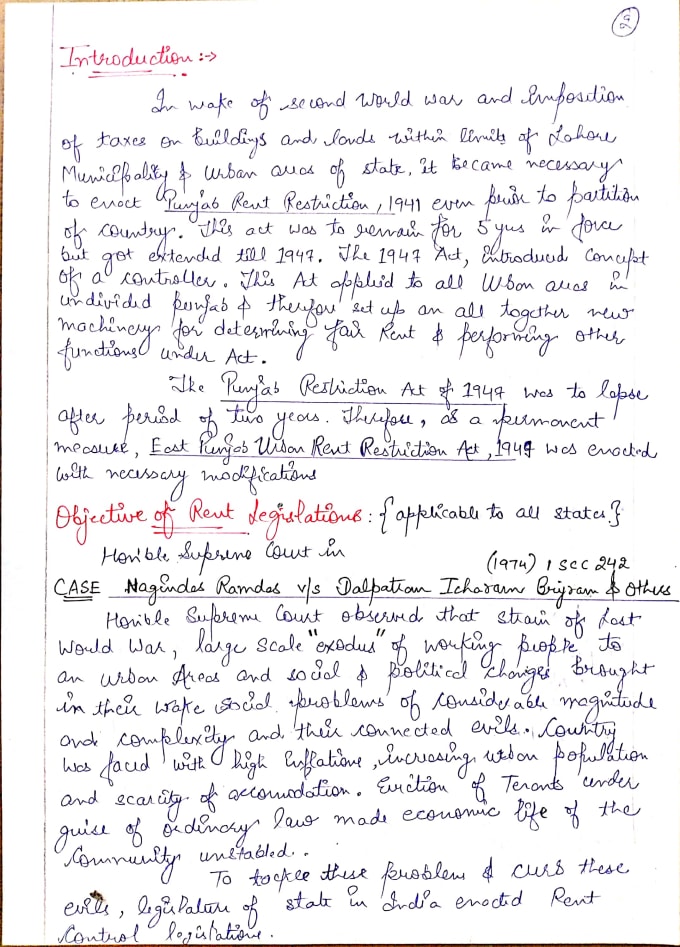 2
Introduction :->
In wake of second world war and Imposition
of taxes on buildings and lands within limits of Lahore
Municipality & Urban areas of state, it became necessary
to enact Punjab Rent Restriction, 1941 even prior to partition
of country. This act was to remain for 5 yrs in force
but got extended till 1947. The 1947 Act, introduced concept
of a controller. This Act applied to all Urban areas in
undivided punjab & therefore set up an all together new
machinery for determining fair Rent & performing other
functions under Act.
The Punjab Restriction Act of 1947 was to lapse
after period of two years. Therefore, as a permanent
measure, East Punjab Urban Rent Restriction Act, 1949 was enacted
with necessary modifications
Objective of Rent Legislations : {applicable to all states.}
Hon'ble Supreme Court in
(1974) 1 SCC 242
CASE Nagindas Ramdas v/s Dalpatram Icharam Brijram & Others
Hon'ble Supreme Court observed that strain of Last
World War, large scale "exodus" of working people to
an urban Areas and social & political changes brought
in their wake social problems of considerable magnitude
and complexity and their connected evils. Country
was faced with high inflations, increasing urban population
and scarcity of accomodation. Eviction of Tenants under
guise of ordinary law made economic life of the
Community unstabled..
To tackle these problems & curb these
evils, legislature of state in India enacted Rent
Control legislations.